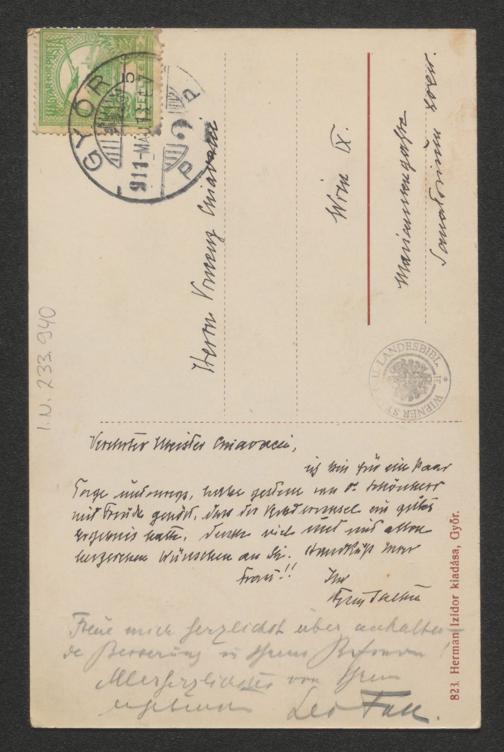 MAGYAR KIR. POSTA
GYŐR
911-MÁJ
P P
Herrn Vincenz Chiavacci
Wien IX.
Mariannengasse
Sanatorium Loew.
I.N. 233.940
WIENER ST. U. LANDESBIBL.
Verehrter Meister Chiavacci,
ich bin für ein paar
Tage unterwegs, habe gestern von Dr. Schönherr
mit Freude gehört, dass der
ein gutes
Ergebnis hatte, denke viel und mit allen
herzlichen Wünschen an Sie. Handkuss Ihrer
Frau!! Ihr
Freue mich herzlichst über anhalten-
de Besserung in Ihrem Befinden!
Allerherzlichstes von Ihrem
ergebenen Leo Fall.
823. Herman Izidor kiadása, Győr.